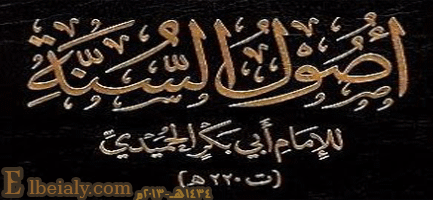 أُصُولُ السُّنَّةِ
للإمام أبي بكر الحُمَيْدِيّ
(ت ٢٢٠ هـ)
Elbeialy.com ١٤٣٤هـ-٢٠١٣م